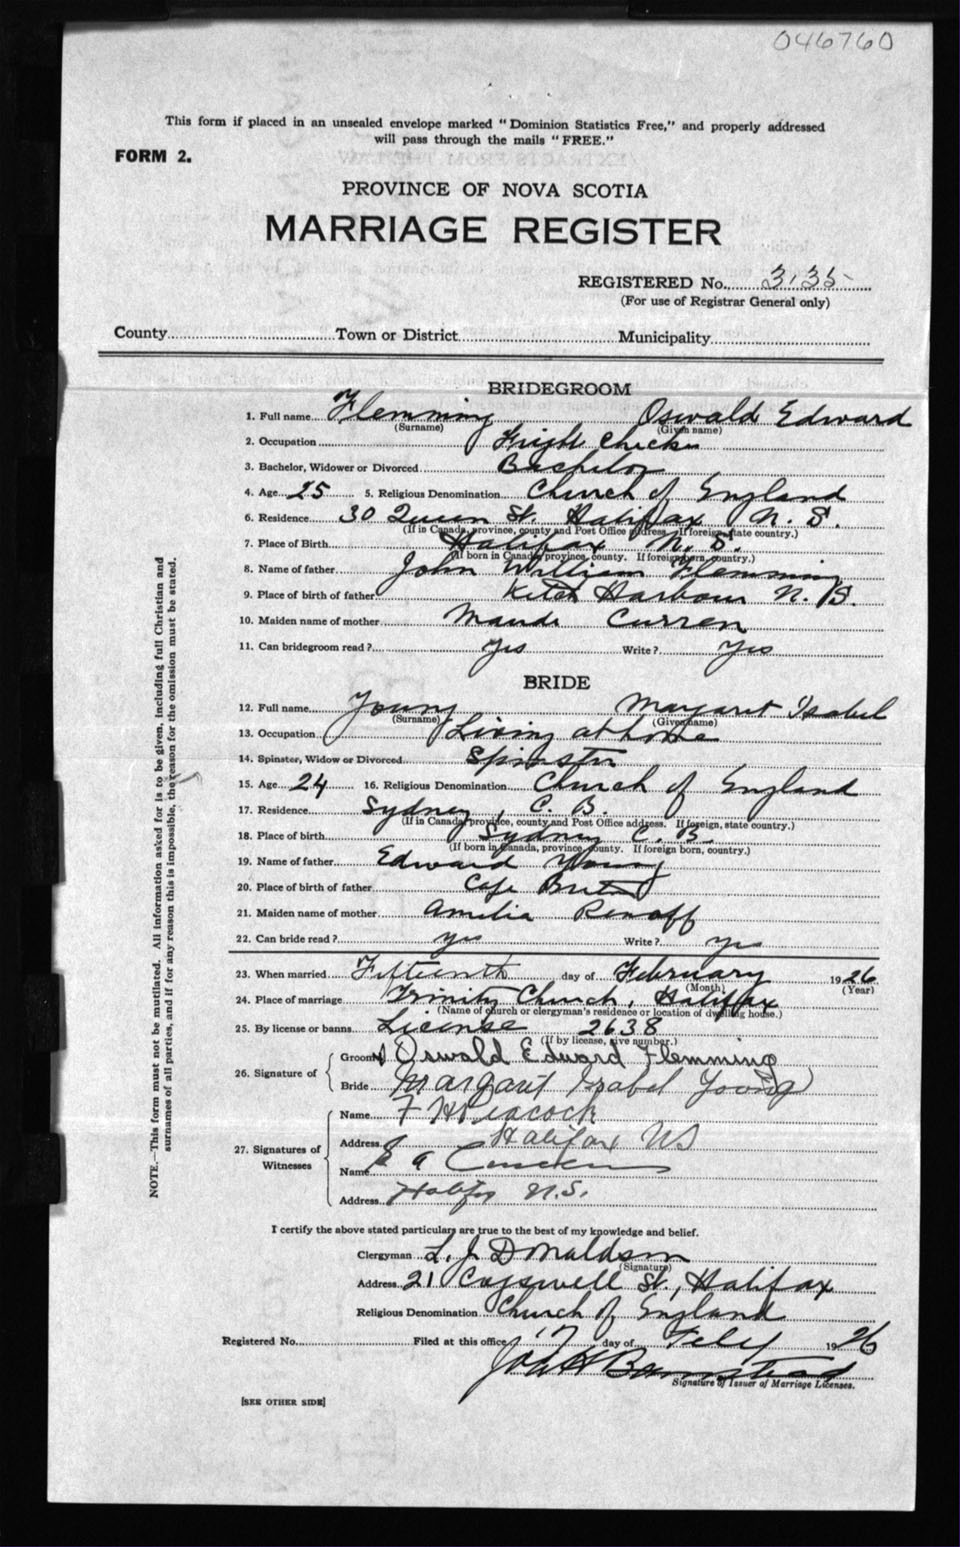 046760
This form if placed in an unsealed envelope marked "Dominion Statistics Free," and properly addressed
will pass through the mails "FREE."
FORM 2.
PROVINCE OF NOVA SCOTIA
MARRIAGE REGISTER
REGISTERED No. 3135
(For use of Registrar General only)
County Town or District Municipality
BRIDEGROOM
1. Full name Flemming Oswald Edward
(Surname) (Given name)
2. Occupation Freight Checker
3. Bachelor, Widower or Divorced Bachelor
4. Age 25 5. Religious Denomination Church of England
6. Residence 30 Queen St. Halifax N. S.
(If in Canada, province, county and Post Office address. If foreign, state country.)
7. Place of Birth Halifax N. S.
(If born in Canada, province, county. If foreign born, country.)
8. Name of father John William Flemming
9. Place of birth of father Ketch Harbour N. S.
10. Maiden name of mother Maude Curren
11. Can bridegroom read? Yes Write? Yes
BRIDE
12. Full name Young Margaret Isabel
(Surname) (Given name)
13. Occupation Living at home
14. Spinster, Widow or Divorced Spinster
15. Age 24 16. Religious Denomination Church of England
17. Residence Sydney, C. B.
(If in Canada, province, county and Post Office address. If foreign, state country.)
18. Place of birth Sydney C. B.
(If born in Canada, province, county. If foreign born, country.)
19. Name of father Edward Young
20. Place of birth of father Cape Breton
21. Maiden name of mother Amelia Renoff
22. Can bride read? yes Write? yes
23. When married Fifteenth day of February 1926
(Month) (Year)
24. Place of marriage Trinity Church, Halifax
(Name of church or clergyman's residence or location of dwelling house.)
25. By license or banns License 2638
(If by license, give number.)
26. Signature of
Groom Oswald Edward Flemming
Bride Margaret Isabel Young
27. Signatures of Witnesses
Name F H Peacock
Address Halifax NS
Name
Address Halifax N.S.
I certify the above stated particulars are true to the best of my knowledge and belief.
Clergyman L. J. Donaldson
(Signature)
Address 21 Cogswell St., Halifax
Religious Denomination Church of England
Registered No. Filed at this office 17 day of Feby 1926
John H Barnstead
Signature of Issuer of Marriage Licenses.
[SEE OTHER SIDE]
NOTE.—This form must not be mutilated. All information asked for is to be given, including full Christian and
surnames of all parties, and if for any reason this is impossible, the reason for the omission must be stated.